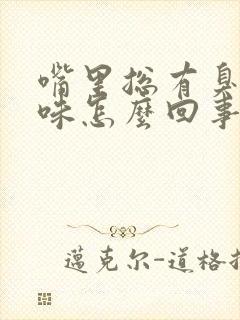 嘴里总有臭
味怎麽回事
邁克尔-道格拉